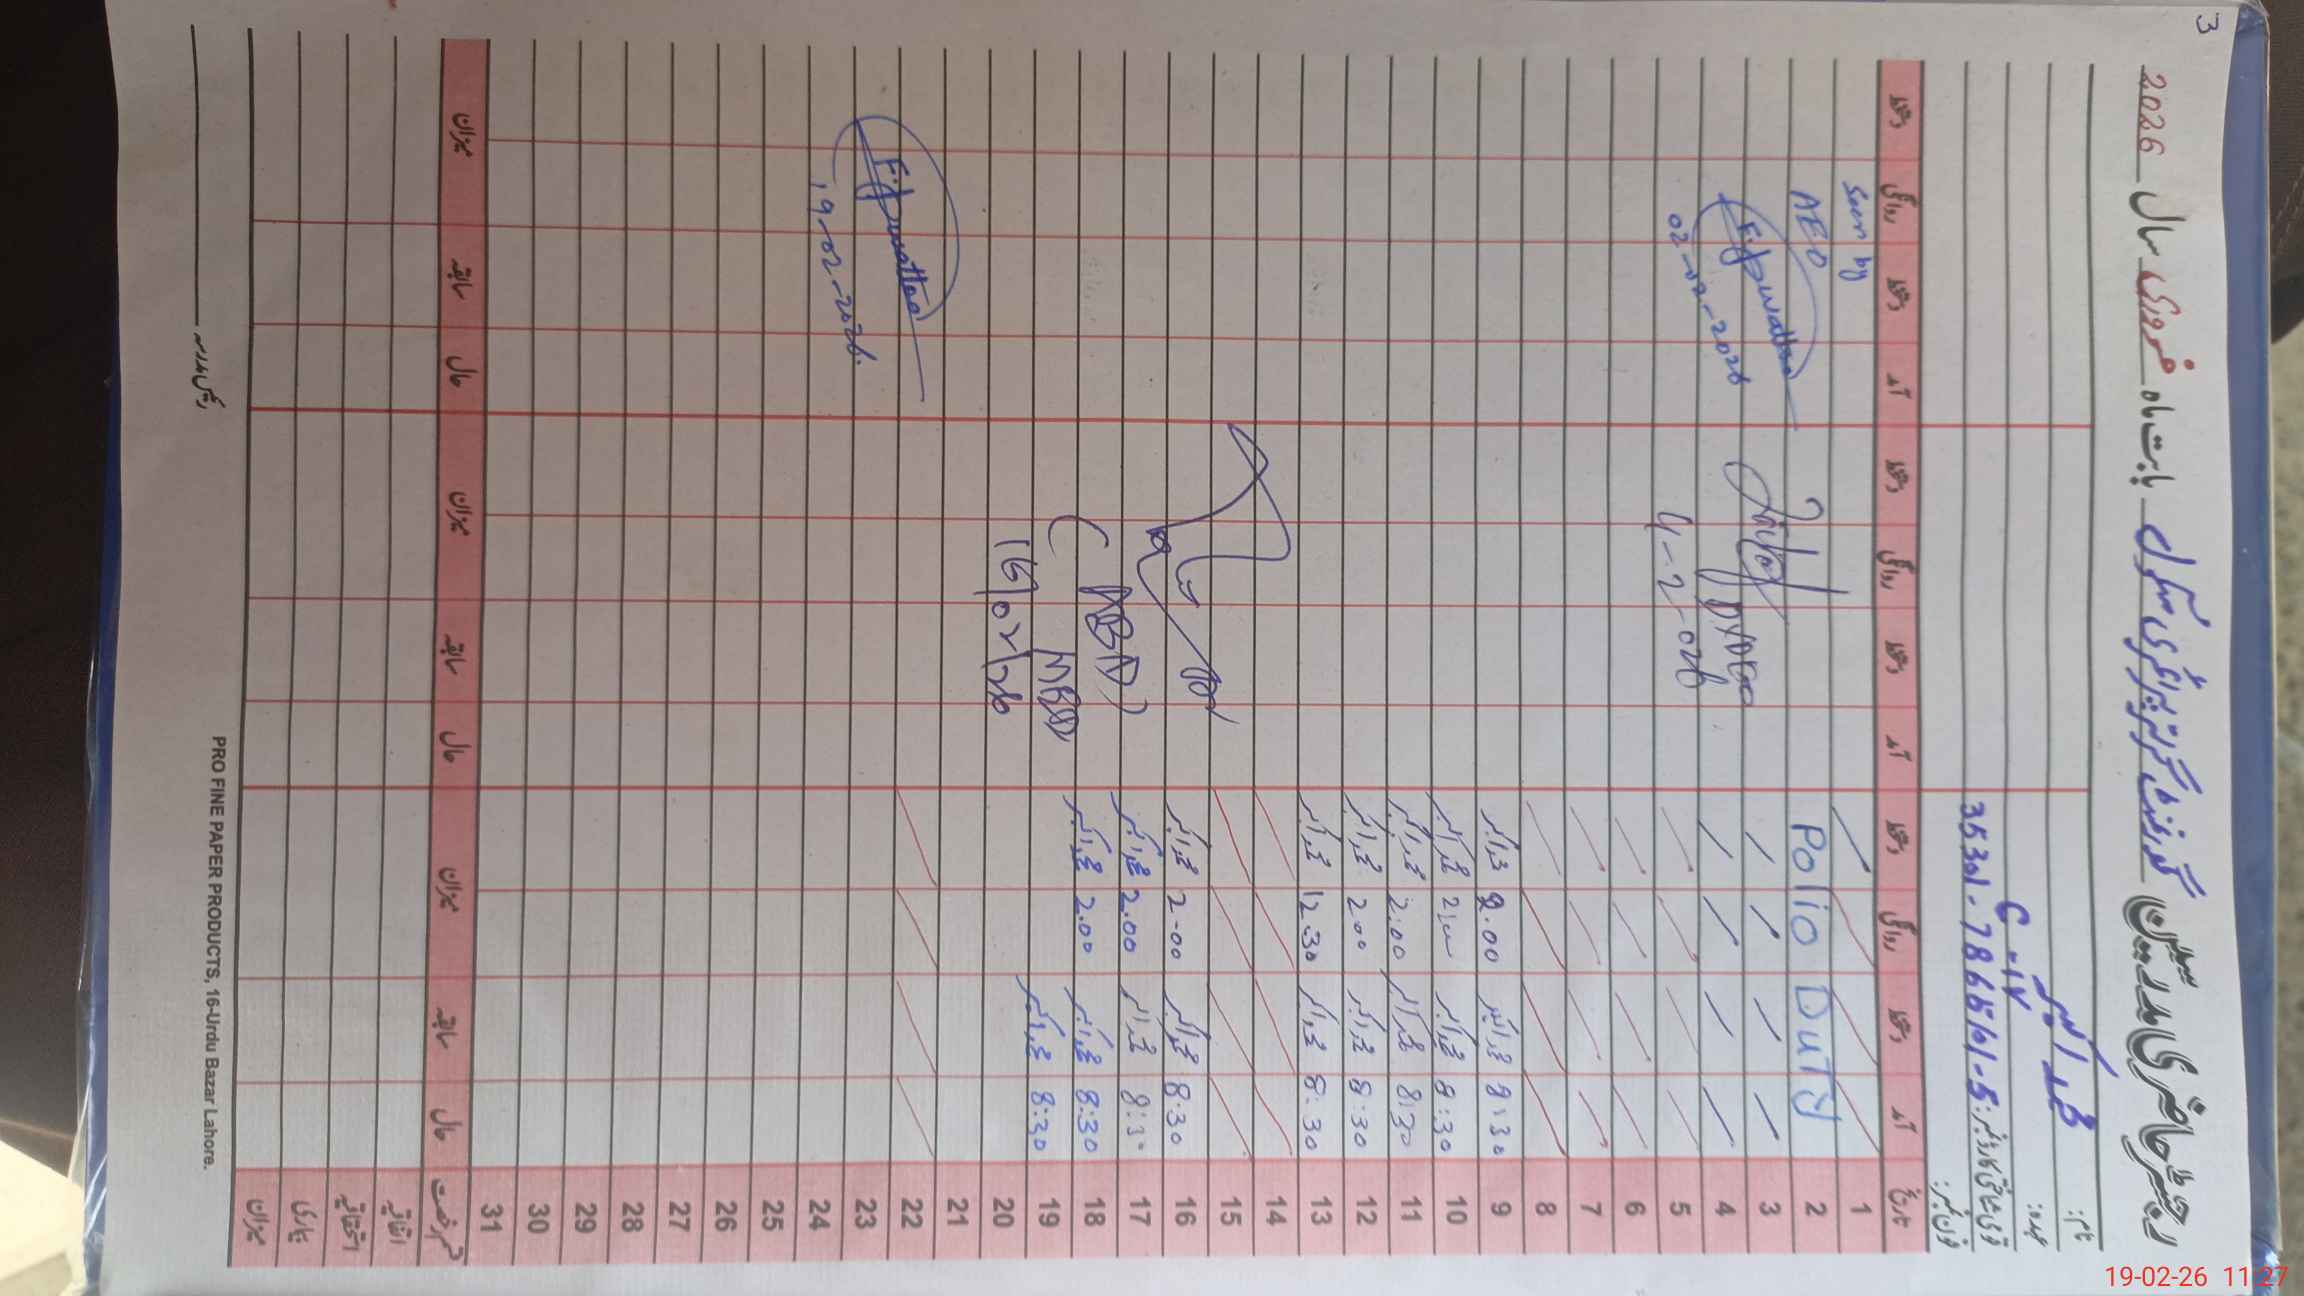 3
رجسٹر حاضری مدرسین گورنمنٹ گرلز پرائمری سکول بابت ماہ فروری سال 2026
نام: محمد اکبر
عہدہ: C-IV
قومی شناختی کارڈ نمبر:
فون نمبر:
تاریخ آمد دستخط روانگی دستخط آمد دستخط روانگی دستخط آمد دستخط روانگی دستخط
1 Seen by
2 Polio Duty AEO
3
4 02-02-2026
5 4-2-026
6
7
8
9 8:30 محمد اکبر 2.00 محمد اکبر
10 8:30 محمد اکبر محمد اکبر
11 8:30 محمد اکبر 2:00 محمد اکبر
12 8:30 محمد اکبر 2:00 محمد اکبر
13 8:30 محمد اکبر 12.30 محمد اکبر
14
15
16 8:30 محمد اکبر 2-00 محمد اکبر
17 8:30 محمد اکبر 2.00 محمد اکبر
18 8:30 محمد اکبر 2.00 محمد اکبر
19 8:30 محمد اکبر
20 16/02/26
21
22
23
24 19-02-2026
25
26
27
28
29
30
31
قسم رخصت حال سابقہ میزان حال سابقہ میزان حال سابقہ میزان
اتفاقیہ
استحقاقیہ
بیماری
میزان
PRO FINE PAPER PRODUCTS, 16-Urdu Bazar Lahore.
رئیس مدرسہ
19-02-26 11:27